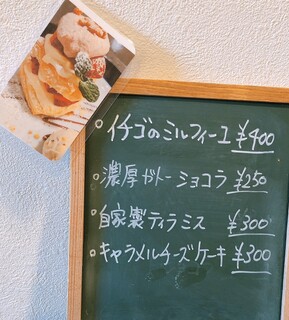 ○イチゴのミルフィーユ ¥400
○濃厚ガトーショコラ ¥250
○自家製ティラミス ¥300
○キャラメルチーズケーキ ¥300